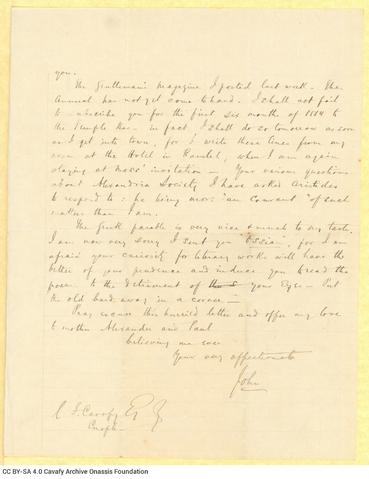 you.
The Gentleman's Magazine I posted last week. The
Annual has not yet come to hand. I shall not fail
to subscribe you for the first six month of 1884 to
the Temple Bar - in fact, I shall do so tomorrow as soon
as I get into town, for I write these lines from my
room at the Hotel in Ramleh, where I am again
staying at invitation - Your various questions
about Alexandria Society I have asked Aristides
to respond to: he being more "au courant" of such
matters than I am.
The Greek parable is very nice & much to my taste.
I am now very sorry I sent you "Ossian", for I am
afraid your curiosity for literary works will have the
better of your prudence and induce you to read the
poem to the detriment of your Eyes - Put
the old bard away in a corner -
Pray excuse this hurried letter and offer my love
to mother Alexander and Paul
believing me ever
Your very affectionate
John
C. F. Cavafy Esq
Cnople -
CC BY-SA 4.0 Cavafy Archive Onassis Foundation